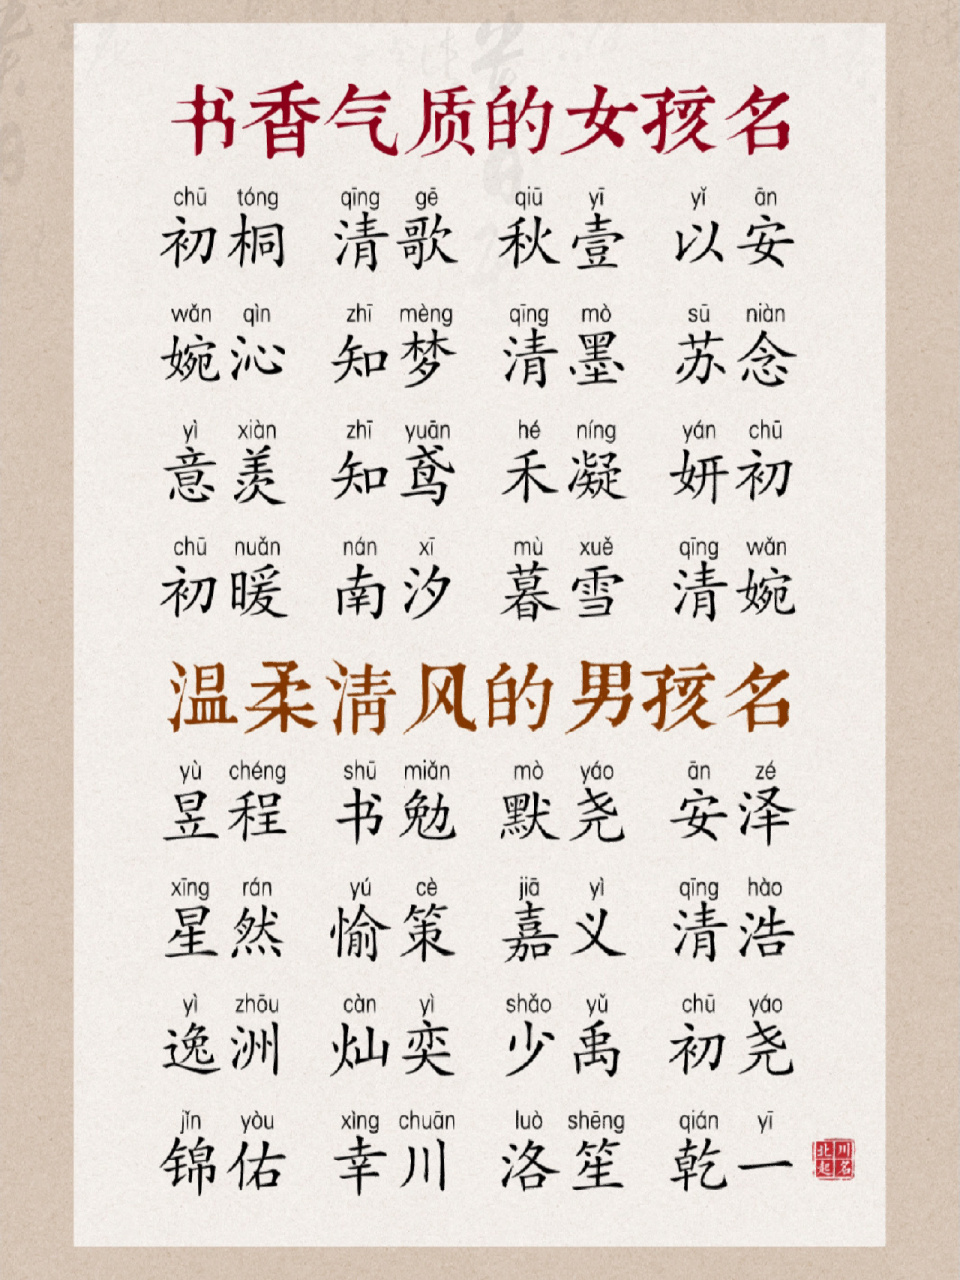 书香气质的女孩名
chū tóng qīng gē qiū yī yǐ ān
初桐 清歌 秋壹 以安
wǎn qìn zhī mèng qīng mò sū niàn
婉沁 知梦 清墨 苏念
yì xiàn zhī yuān hé níng yán chū
意羡 知鸢 禾凝 妍初
chū nuǎn nán xī mù xuě qīng wǎn
初暖 南汐 暮雪 清婉
温柔清风的男孩名
yù chéng shū miǎn mò yáo ān zé
昱程 书勉 默尧 安泽
xīng rán yú cè jiā yì qīng hào
星然 愉策 嘉义 清浩
yì zhōu càn yì shǎo yǔ chū yáo
逸洲 灿奕 少禹 初尧
jǐn yòu xìng chuān luò shēng qián yī
锦佑 幸川 洛笙 乾一
北川
起名